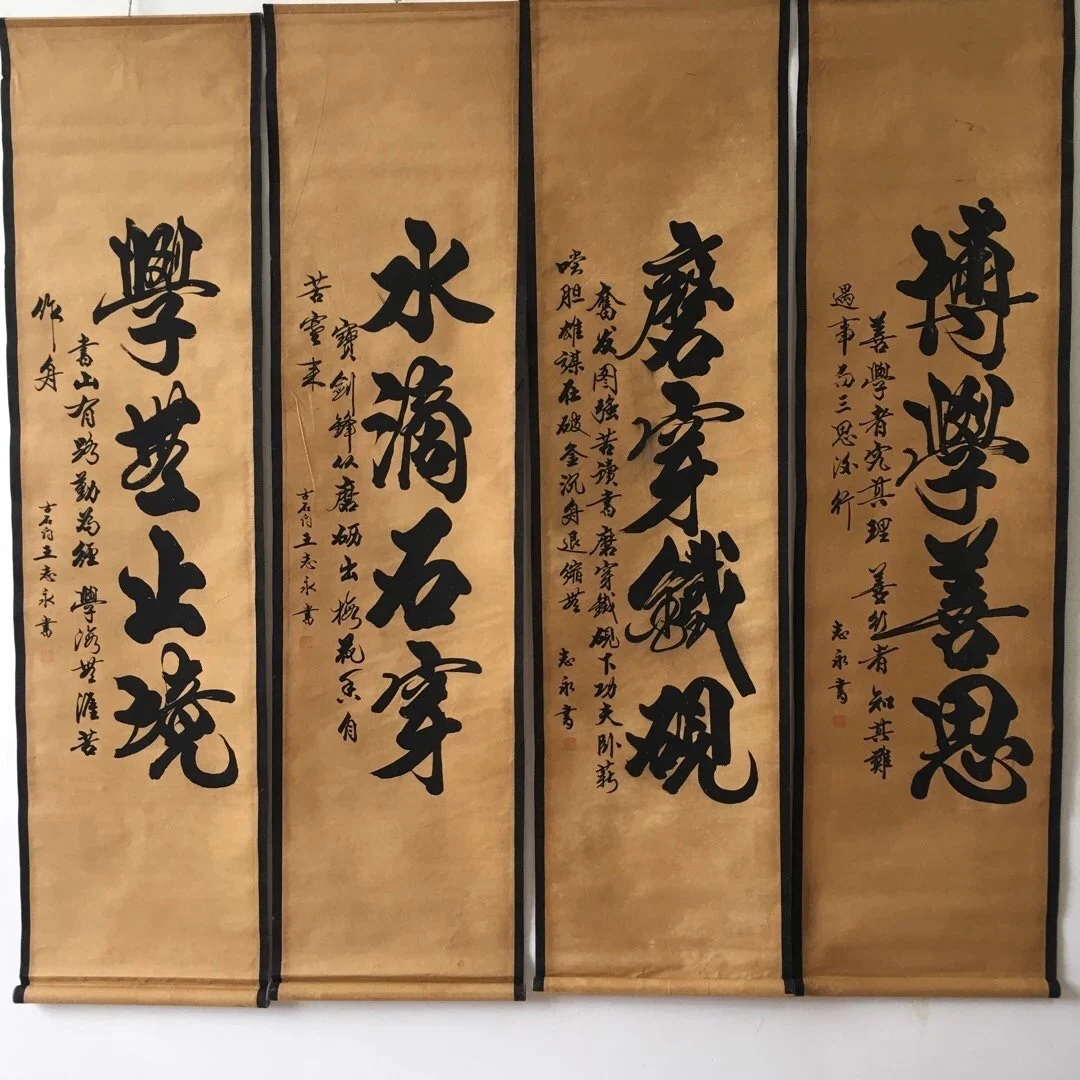 博學善思
善學者究其理 善行者知其難
遇事三思後行
志永書
磨穿鐵硯
奮发图强苦讀書磨穿鐵硯下功夫卧薪
嚐胆雄謀在破釜沉舟退縮無
志永書
水滴石穿
寶劍鋒从磨砺出梅花香自
苦寒来
古石門王志永書
學無止境
書山有路勤為徑 學海無涯苦
作舟
古石門王志永書